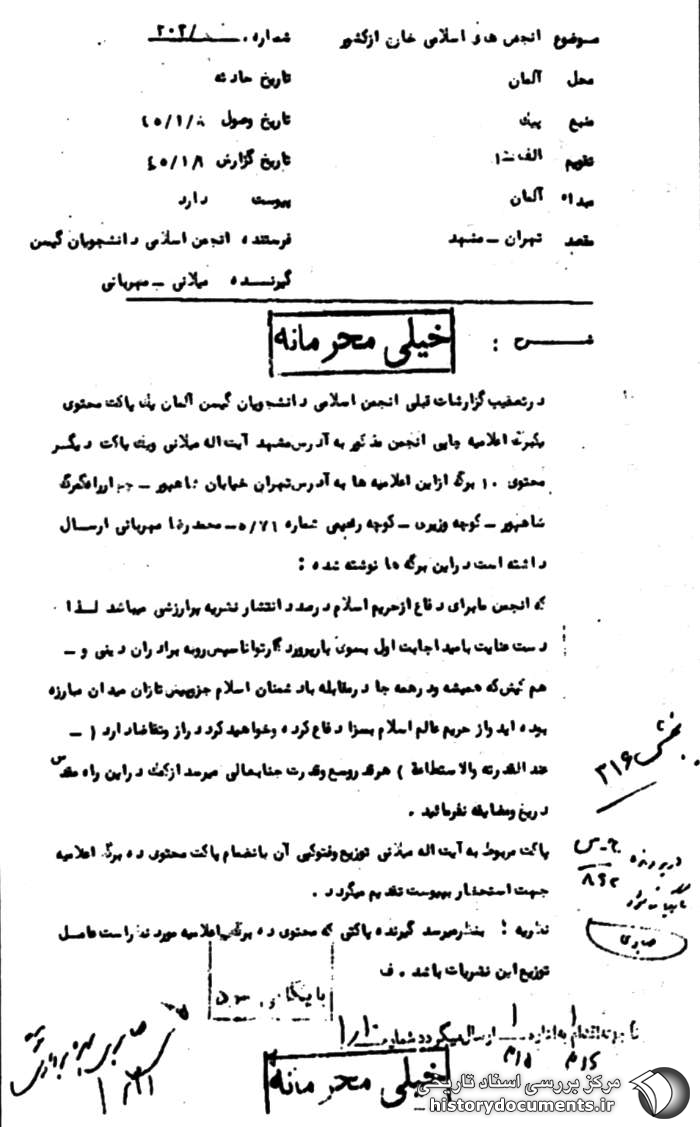 موضوع انجمن های اسلامی خارج ازکشور
شماره
محل آلمان
تاریخ حادثه
منبع پیک
تاریخ وصول ۴۵/۱/۸
تقویم الف
تاریخ گزارش ۴۵/۱/۸
مبداء آلمان
پیوست دارد
مقصد تهران – مشهد
فرستنده انجمن اسلامی دانشجویان گیسن
گیرنده میلانی – مهربانی
شرح :
خیلی محرمانه
درتعقیب گزارشات قبلی انجمن اسلامی دانشجویان گیسن آلمان یک پاکت محتوی
یکبرگ اعلامیه چاپی انجمن مذکور به آدرس مشهد آیت اله میلانی ویک پاکت دیگر
محتوی ۱۰ برگ ازاین اعلامیه ها به آدرس تهران خیابان شاهپور –
شاهپور – کوچه وزیری – کوچه رفیعی شماره ۵/۷۱ – محمدرضا مهربانی ارسال
داشته است دراین برگه ها نوشته شده :
که انجمن مابرای دفاع ازحریم اسلام درصدد انتشار نشریه پرارزشی میباشد لذا
دست عنایت بامید اجابت اول بسوی باریپروردگارتوانا سپس روبه برادران دینی و –
هم کیش که همیشه ودرهمه جا درمقابله بادشمنان اسلام جزوپیش تازان میدان مبارزه
بوده اید واز حریم عالم اسلام بسزا دفاع کرده وخواهید کرد دراز وتقاضادارد ( –
عند القدرته والاستطاعة ) هرقدروسع وقدرت جنابعالی میرسد ازکمک دراین راه مقدس
دریغ ومضایقه نفرمائید .
پاکت مربوط به آیت اله میلانی توزیع وفتوکپی آن بانضمام پاکت محتوی ده برگ اعلامیه
جهت استحضار بپیوست تقدیم میگردد .
نظریه : بنظرمیرسد گیرنده پاکتی که محتوی ده برگ اعلامیه مورد نظراست عامل
توزیع این نشریات باشد . ف
بخش ۳۱۶
در پرونده
بایگانی شود
ارسال میگردد شماره
خیلی محرمانه
مرکز بررسی اسناد تاریخی
historydocuments.ir